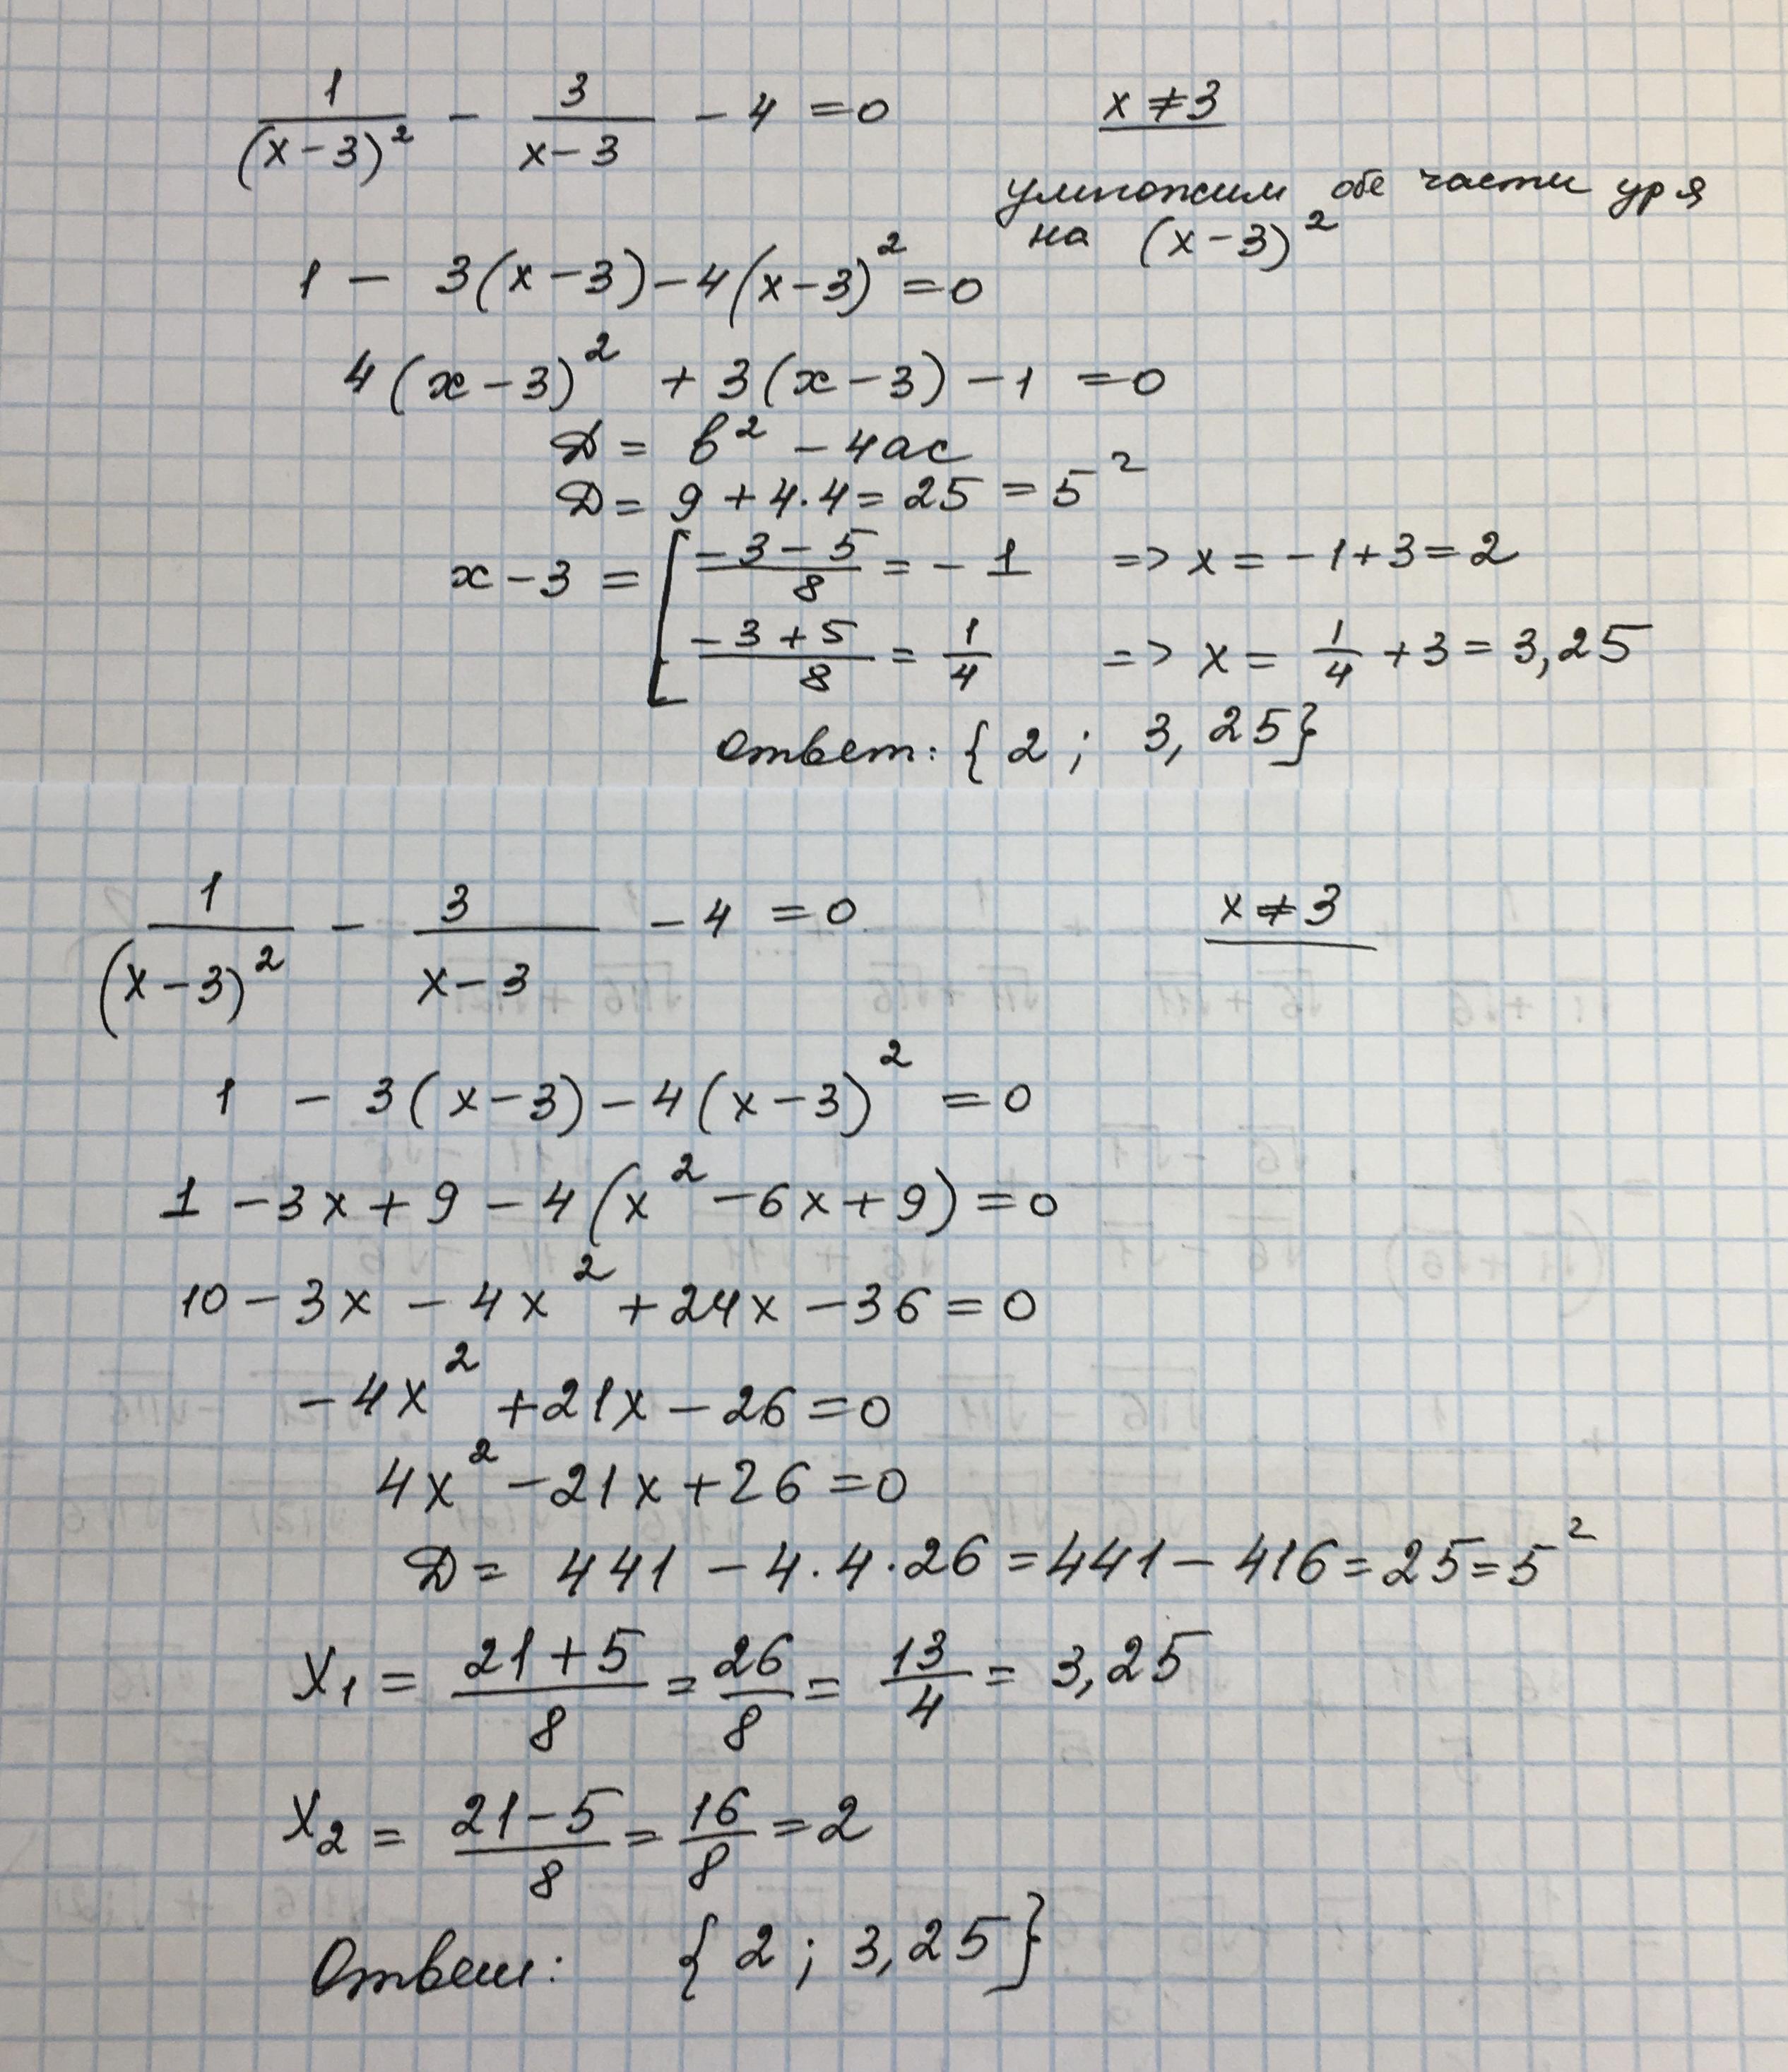 1/(x-3)² - 3/(x-3) - 4 = 0    x ≠ 3
умножим обе части ур я
на (x-3)²
1 - 3(x-3) - 4(x-3)² = 0
4(x-3)² + 3(x-3) - 1 = 0
Д = b² - 4ac
Д = 9 + 4·4 = 25 = 5²
x-3 = [ (-3-5)/8 = -1 => x = -1+3 = 2
(-3+5)/8 = 1/4 => x = 1/4 + 3 = 3,25
Ответ: {2; 3,25}
1/(x-3)² - 3/(x-3) - 4 = 0    x ≠ 3
1 - 3(x-3) - 4(x-3)² = 0
1 - 3x + 9 - 4(x² - 6x + 9) = 0
10 - 3x - 4x² + 24x - 36 = 0
-4x² + 21x - 26 = 0
4x² - 21x + 26 = 0
Д = 441 - 4·4·26 = 441 - 416 = 25 = 5²
x₁ = (21+5)/8 = 26/8 = 13/4 = 3,25
x₂ = (21-5)/8 = 16/8 = 2
Ответ: {2; 3,25}